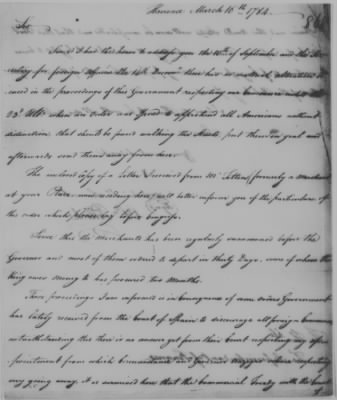 Havana March 10th 1784
Sir
Since I had the honor to address you the 10th of September and the Secre
tary for foreign Affairs the 14th Decemr there has no material alteration oc
cured in the proceedings of this Government respecting our Commerce until the
23d Ulto when an order was given to apprehend all Americans without
distinction that should be found walking the Streets, put them in goal and
afterwards send them away from here
The inclosed Copy of a Letter I received from Mr formerly a Merchant
at your Place now residing here will better inform you of the particulars of
the order which please lay before Congress
Since this the Merchants has been regularly summoned before the
Governor and most of them ordered to depart in thirty days, some of whom the
King owes money to has procured two Months.
These proceedings I am informed is in consequence of some orders Government
has lately received from the Court of Spain to discourage all foreign Commerce
notwithstanding this there is no answer yet from their Court respecting my app
ointment from which Circumstance our Governor respecting
my going away. it is surmised here that the Commercial Treaty with the Court